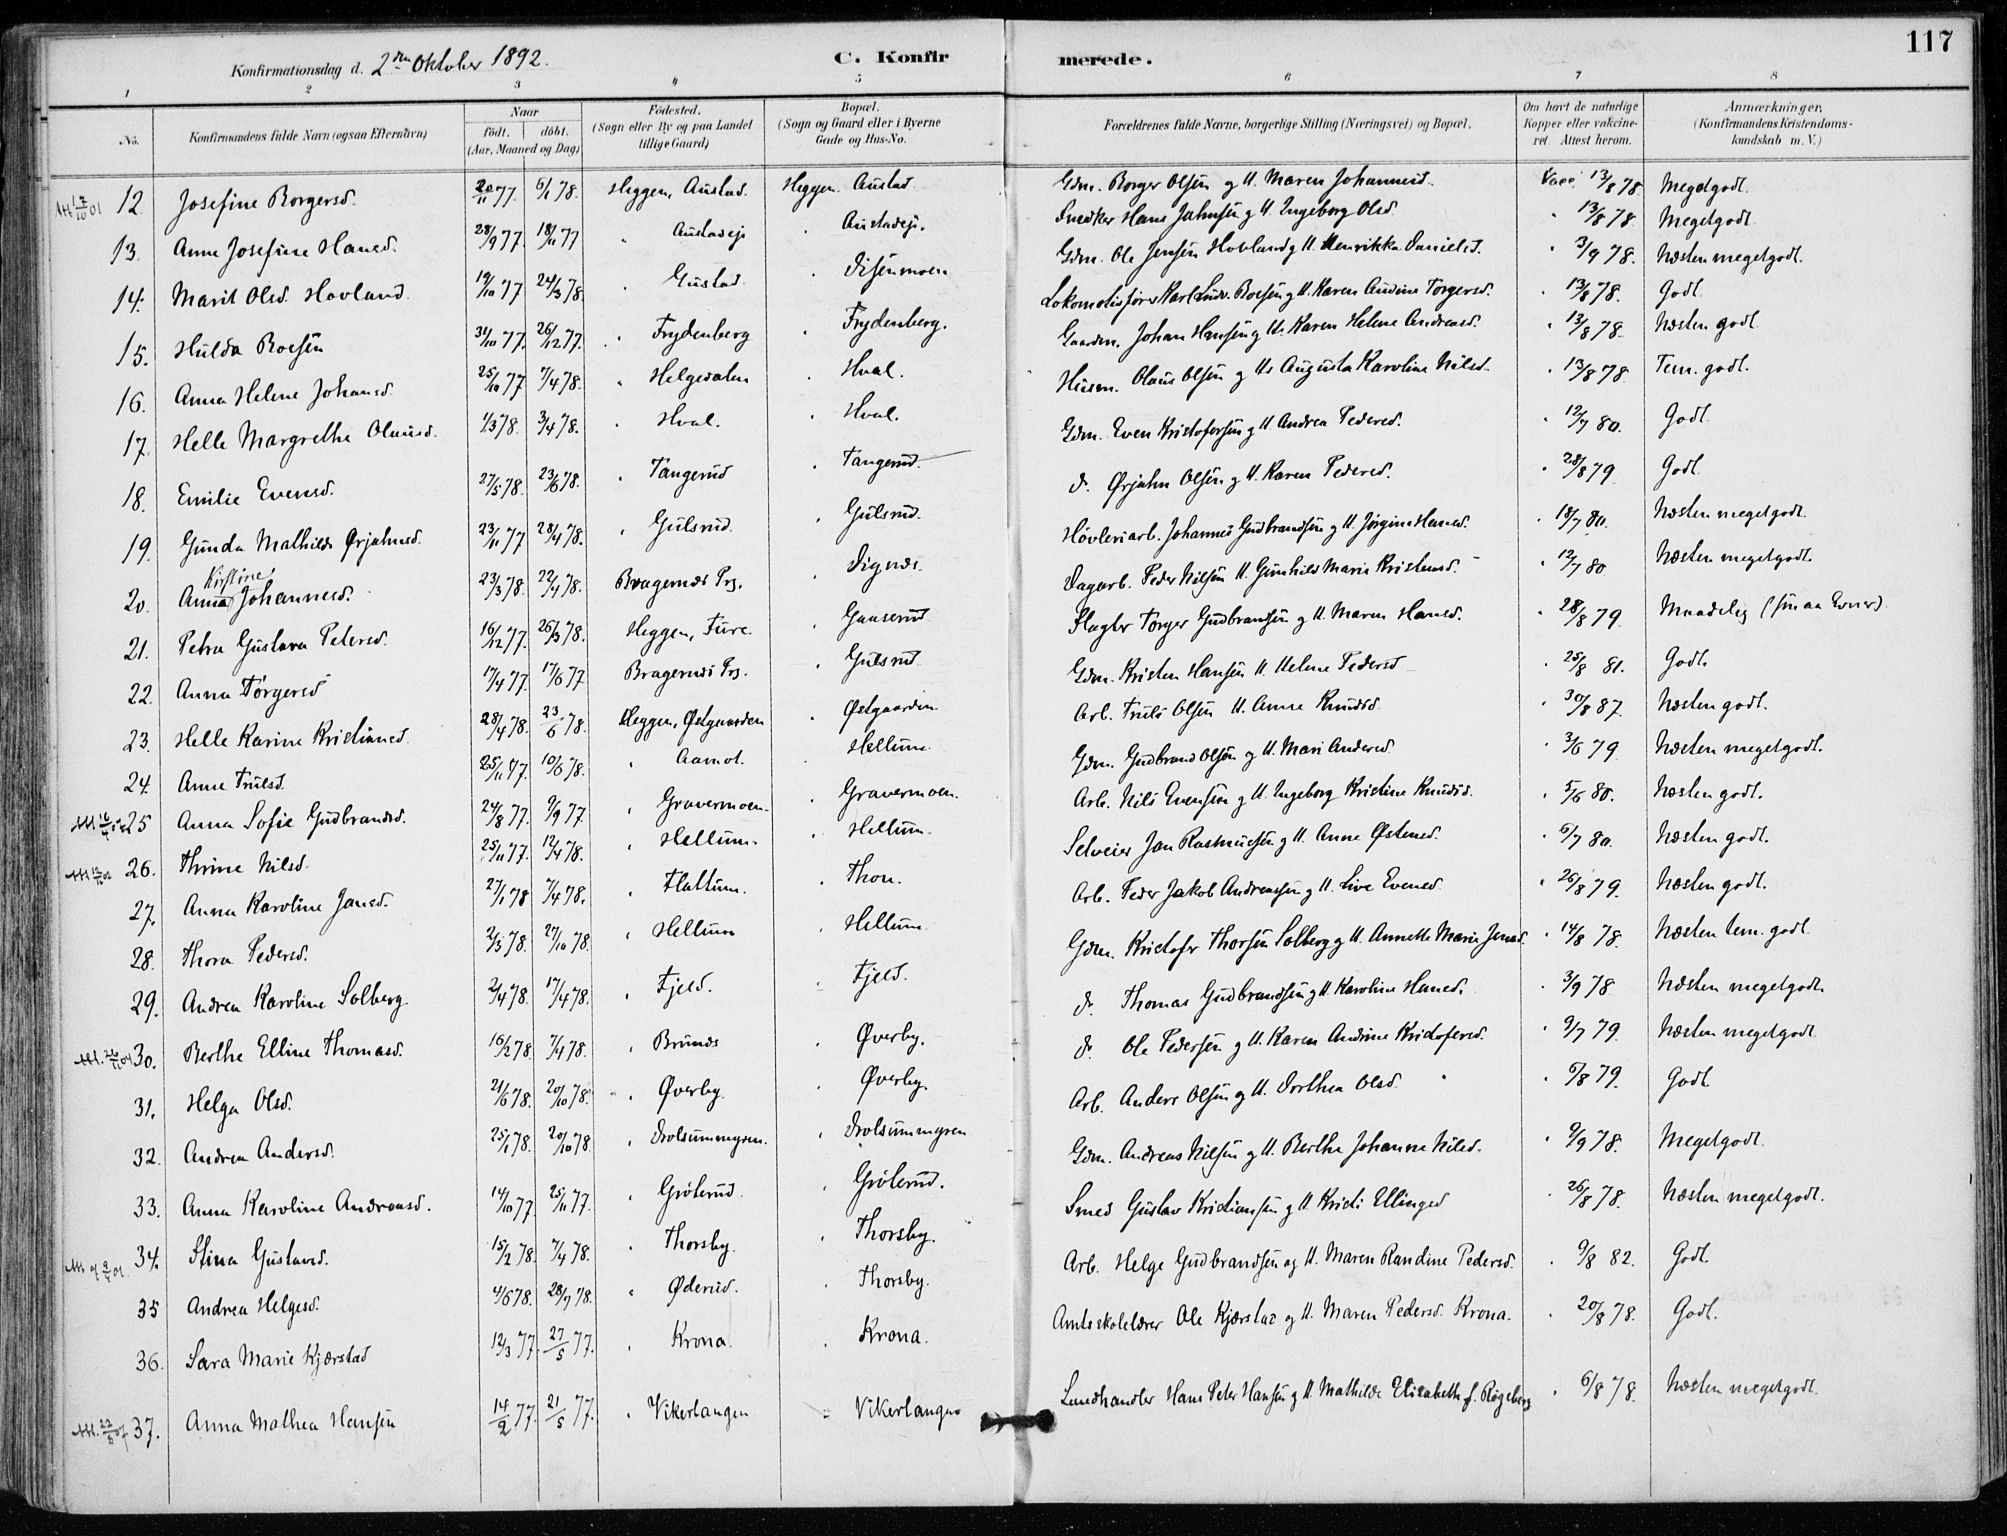 117
Konfirmationsdag d. 2den Oktober 1892.
C. Konfirmerede.
1 2 3 4 5 6 7 8
No. | Konfirmandens fulde Navn (ogsaa Efternavn) | Naar født. døbt. (Aar, Maaned og Dag) | Fødested. (Sogn eller By og paa Landet tillige Gaard) | Bopæl. (Sogn og Gaard eller i Byerne Gade og Hus-No. | Forældrenes fulde Navne, borgerlige Stilling (Næringsvei) og Bopæl. | Om havt de naturlige Kopper eller vakcineret. Attest herom. | Anmærkninger. (Konfirmandens Kristendomskundskab m. V.)
12. Josefine Borgersd. 20/11 77. 6/1 78. Heggen, Austad. Heggen Austad Gdm. Borger Olsen og H. Maren Johannesd. Vacc. 13/8 78. Megetgodt.
13. Anne Josefine Hansd. 28/9 77. 18/11 77 " Austadeje " Austadeje. Snedker Hans Jahnsen og H. Ingeborg Olsd. " 13/8 78. Megetgodt
14. Marit Olsd. Hovland 19/10 77 24/3 78. " Gustad " Disenmoen Gdm. Ole Jensen Hovland og H. Henrikka Danielsd. " 3/9 78. Næsten megetgodt.
15. Hulda Boesen 31/10 77. 26/12 77. " Frydenberg " Frydenberg. Lokomotivfører Karl Ludv. Boesen og H. Karen Andine Torgersd. " 13/8 78. Godt
16. Anna Helene Johansd. 25/10 77 7/4 78. " Helgesalen " Hval. Gaardm. Johan Hansen og H. Karen Helene Andreasd. " 13/8 78. Næsten godt
17. Helle Margrethe Olausd. 1/3 78. 3/4 78. " Hval. " Hval. Husm. Olaus Olsen og H. Augusta Karoline Nilsd. " 13/8 78 Tem. godt.
18. Emilie Evensd. 27/5 78. 23/6 78. " Tangerud " Tangerud. Gdm. Even Kristofersen og H. Andrea Pedersd. " 12/7 80. Godt
19. Gunda Mathilde Ørjahnsd. 23/11 77 28/4 78. " Gulsrud. " Gulsrud. d. Ørjahn Olsen og H. Karen Pedersd. " 28/8 79 Godt
20. Anna Kirstine Johannesd. 23/3 78. 22/4 78. Bragernes Prs. " Signes. Høvleriarb. Johannes Gudbrandsen og H. Jørgine Hansd. " 18/7 80. Næsten megetgodt
21. Petra Gustava Petersd. 16/12 77. 26/3 78. Heggen, Fure. " Gaaserud Dagarb. Peder Nilsen H. Gunhild Marie Kristensd. " 12/7 80 Næsten megetgodt.
22. Anna Torgersd 17/4 77. 17/6 77 Bragernes Prs. " Gulsrud Slagter Torger Gudbrandsen og H. Maren Hansd. " 28/8 79 Maadelig (smaa Evner)
23. Helle Karine Kristensd. 28/4 78. 23/6 78. Heggen, Østgaarden " Østgaarden Gdm. Kristen Hansen H. Helene Pedersd " 25/8 81. Godt.
24. Anne Trulsd. 25/11 77. 10/6 78. " Aamot. " Hellum. Arb. Truls Olsen H. Anne Knudsd. " 30/8 87. Næsten godt.
25 Anna Sofie Gudbrandsd. 24/8 77. 9/9 77 " Gravermoen. " Gravermoen. Gdm. Gudbrand Olsen og H. Mari Andersd " 3/6 79 Næsten megetgodt.
26. Thrine Nilsd. 25/11 77. 12/4 78. " Hellum. " Hellum. Arb. Nils Evensen og H. Ingeborg Kristine Knudsd. " 5/6 80. Næsten godt.
27. Anna Karoline Jansd. 27/1 78 7/4 78. " Flattum. " Thon. Selveier Jan Rasmussen og H. Anne Østensd. " 6/7 80. Næsten godt.
28. Thora Pedersd. 2/5 78. 27/10 78. " Hellum " Hellum Arb. Peder Jakob Andreassen og H. Live Evensd. " 26/8 79. Næsten godt.
29. Andrea Karoline Solberg. 2/4 78. 17/4 78. " Fjeld. " Fjeld. Gdm. Kristofer Thorsen Solberg og H. Annette Marie Jensd. " 14/8 78. Næsten tem. godt
30. Berthe Elline Thomasd. 16/2 78. 7/4 78. " Brunes " Øverby. d. Thomas Gudbrandsen og H. Karoline Hansd. " 3/9 78 Næsten megetgodt.
31. Helga Olsd. 21/6 78. 20/10 78. " Øverby. " Øverby. d. Ole Pedersen og H. Karen Andrine Kristofersd. " 9/7 79. Næsten megetgodt
32. Andrea Andersd. 25/1 78. 20/10 78. " Drolsummyren. " Drolsummyren Arb. Anders Olsen og H. Dorthea Olsd. " 5/8 79. Godt
33. Anna Karoline Andreasd. 14/10 77. 25/11 77. " Grøterud. " Grøterud. Gdm. Andreas Nilsen og H. Berthe Johanne Nilsd. " 9/9 78. Megetgodt.
34. Stina Gustavsd. 15/2 78. 7/4 78. " Thorsby. " Thorsby. Smed Gustav Kristiansen og H. Kristi Ellingsd " 26/8 78. Næsten megetgodt.
35 Andrea Helgesd. 4/6 78. 28/7 78. " Øderud. " Thorsby. Arb. Helge Gudbrandsen og H. Maren Randine Pedersd. " 9/8 82. Godt.
36. Sara Marie Kjærstad 12/3 77. 27/5 77. " Krona. " Krona. Amtsskolelærer Ole Kjærstad og H. Maren Pedersd. Krona. " 20/8 78. Godt.
37. Anna Mathea Hansen 14/2 77. 21/5 77. " Vikerlangen " Vikerlangen Landhandler Hans Peter Hansen og H. Mathilde Elisabeth f. Røgeberg " 6/8 78. Næsten megetgodt.